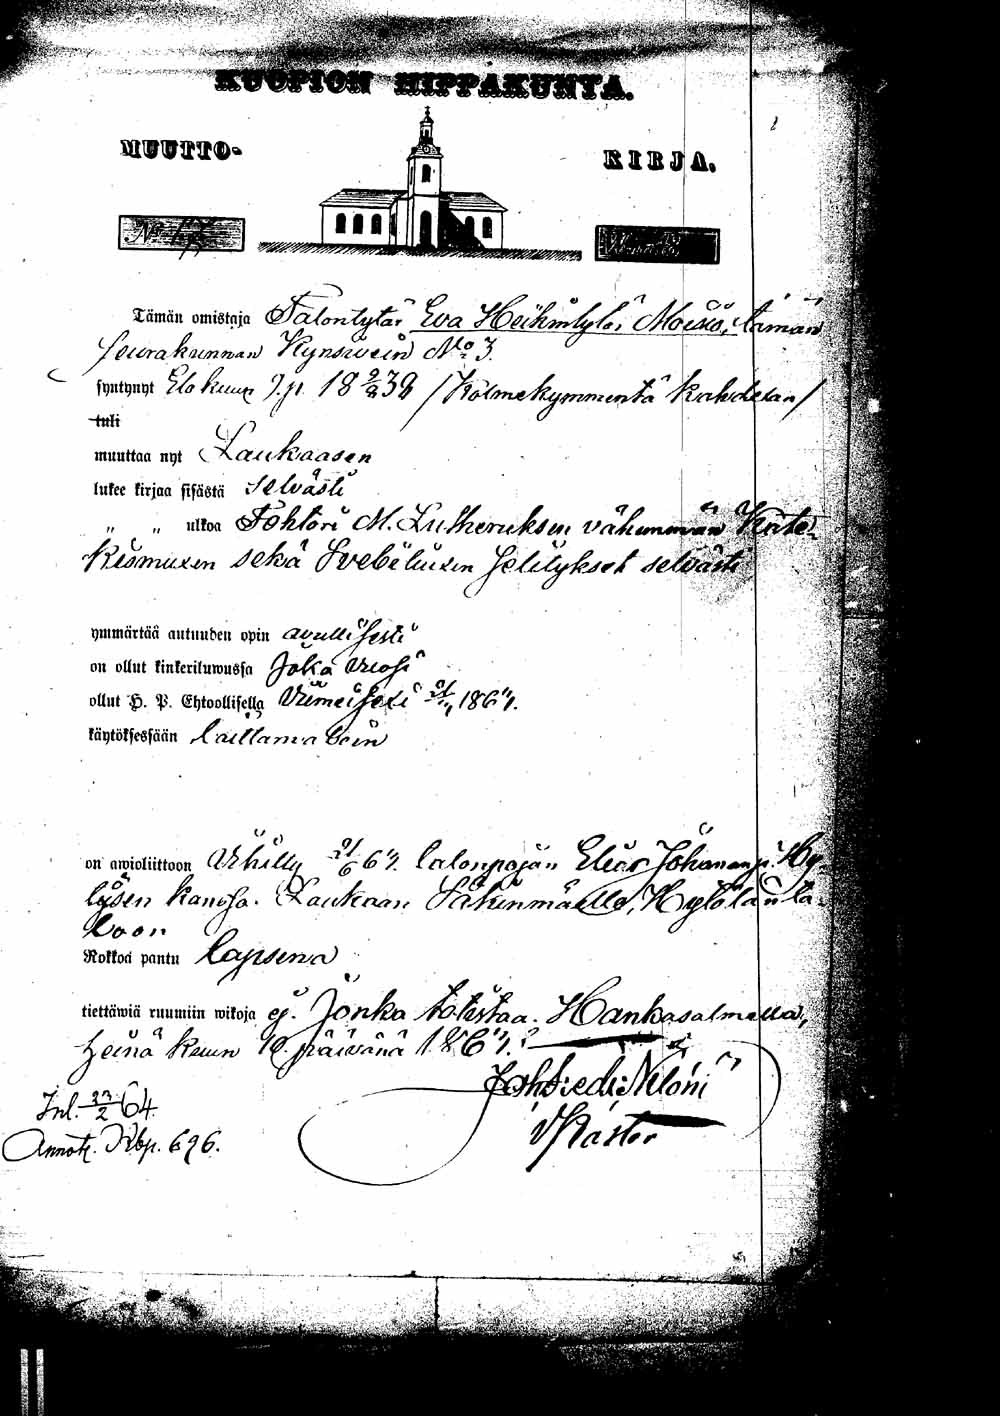 KUOPION HIPPAKUNTA.
MUUTTO- KIRJA.
No
Tämän omistaja Talontytär Eva Heikintytär Moisio, tämän
seurakunnan Kynsivein No 3.
syntynyt Elokuun 9 p. 18 9/8 32 /Kolmekymmentä kahdetan/
tuli
muuttaa nyt Laukaasen
lukee kirjaa sisästä selvästi
„ „ ulkoa Tohtori M. Lutheruksen vähemmän Kate-
kismuxen sekä Svebeliuxen selitykset selvästi
ymmärtää autuuden opin avullisesti
on ollut kinkeriluwussa Joka vuosi
ollut H. P. Ehtoollisella Viimeisexi
käytöksessään laittamatoin
on awioliittoon Vihitty talonpojan Elias Johananp. Hy-
tösen kanssa. Laukaan Hytölän ta-
loon
Rokkoa pantu lapsena
tiettäwiä ruumiin wikoja ej. Jonka totistaa. Hankasalmella,
Heinä kuun päivänä
Joh: Fred: Neloni
V Pastor
Inl. 64.
Annot. Kbp. 696.